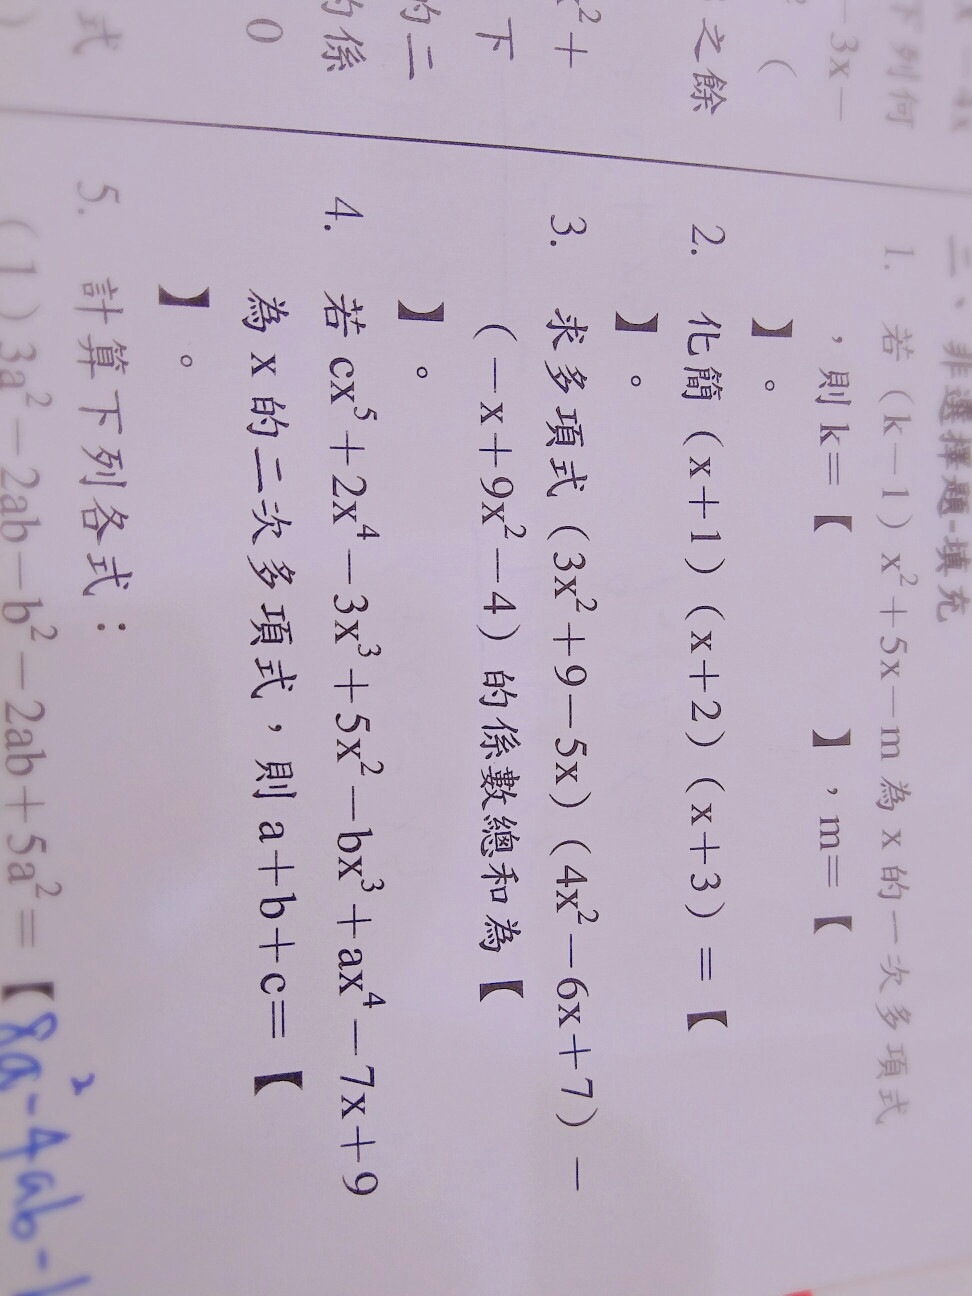 x－4x
下列何
－3x－
（
之餘
x²＋
下
的二
的係
0
式
三、非選擇題-填充
1. 若（k－1）x²＋5x－m 為 x 的一次多項式
，則 k＝【 】，m＝【
】。
2. 化簡（x＋1）（x＋2）（x＋3）＝【
】。
3. 求多項式（3x²＋9－5x）（4x²－6x＋7）－
（－x＋9x²－4）的係數總和為【
】。
4. 若 cx⁵＋2x⁴－3x³＋5x²－bx³＋ax⁴－7x＋9
為 x 的二次多項式，則 a＋b＋c＝【
】。
5. 計算下列各式：
（1）3a²－2ab－b²－2ab＋5a²＝【8a²-4ab-